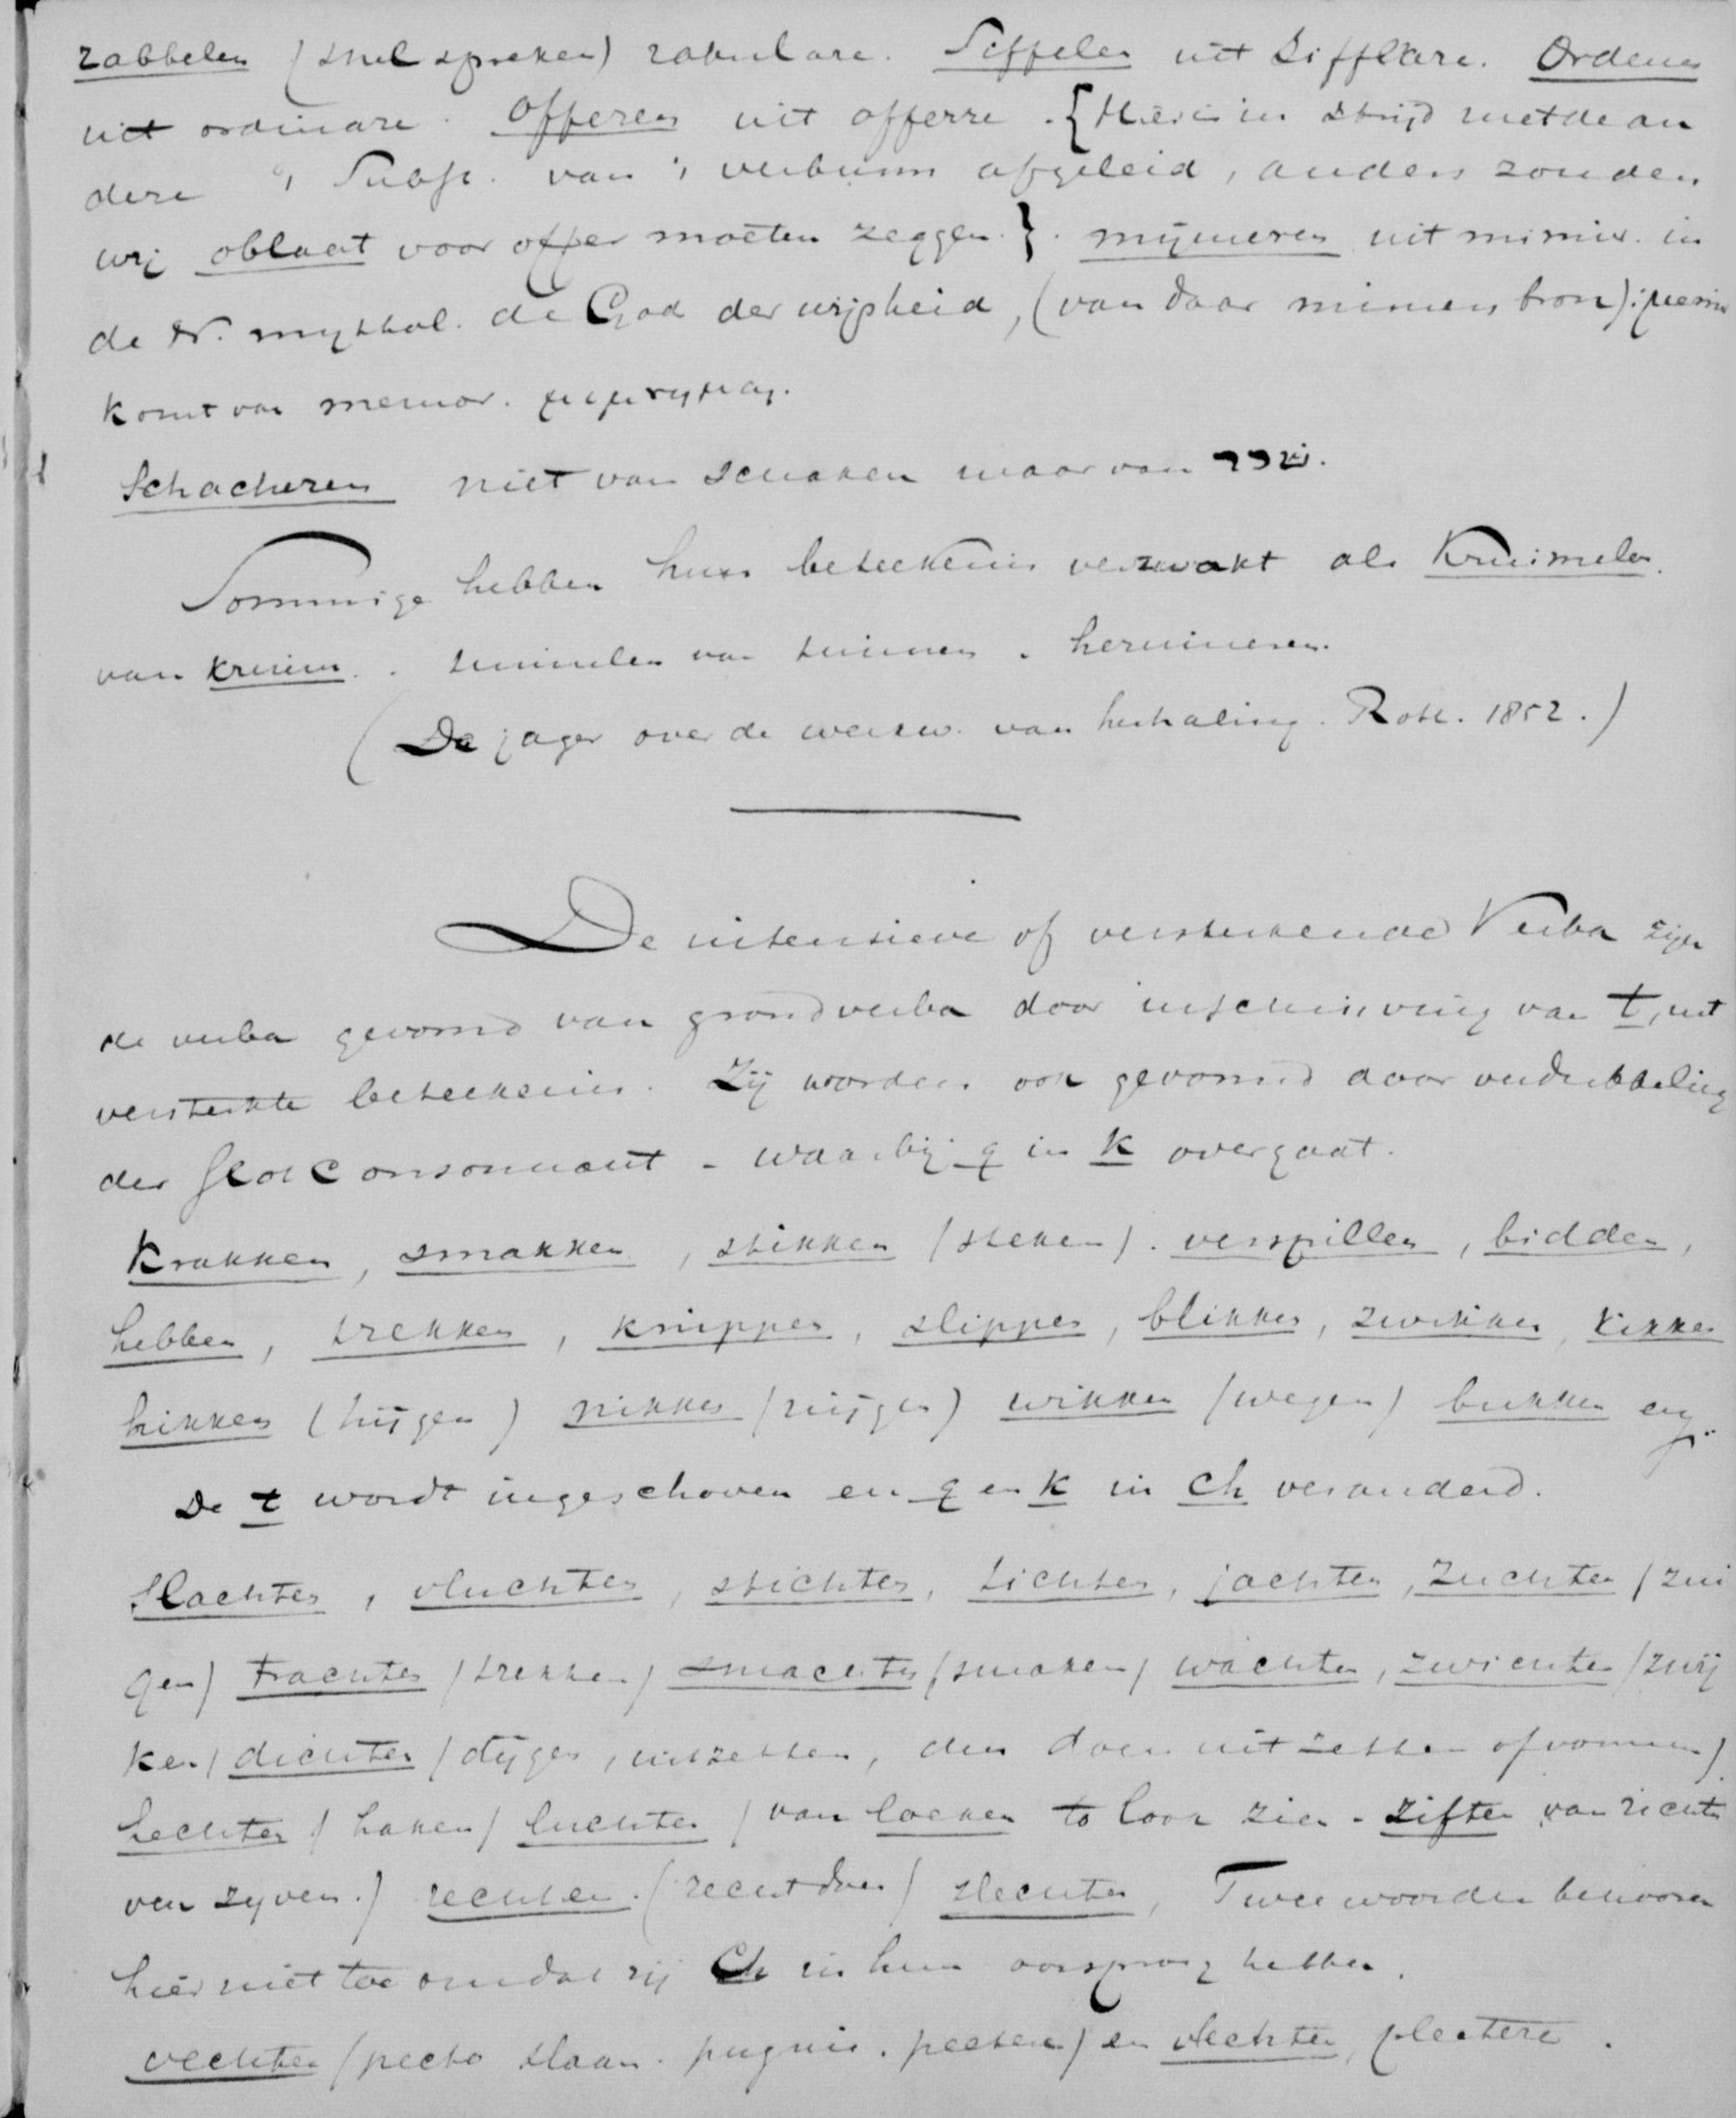 rabbelen (snel spreken) rabulare. Siffelen uit Sifflare. Ordenen
uit ordinare. Offeren uit offerre. {Hier is in strijd met de an
dere 't Subst. van 't verbum afgeleid, anders zouden
wij oblaat voor offer moeten zeggen.}. mijmeren uit mimir. in
de N. mythol. de God der wijsheid, (van daar mimers bron):
komt van memor.
Schacheren niet van schaken maar van שכר.
Sommige hebben hun beteekenis verzwakt als Kruimelen.
van kruim. tuimelen van tuimen. herinneren.
(De jager over de werkw. van herhaling. Rott. 1852.)
De intensieve of versterkende Verba zijn
de verba gevormd van grondverba door inschuiving van t, met
versterkte beteekenis. Zij worden ook gevormd door verdubbeling
der slotconsonnant - waarbij g in k overgaat.
Krakken, smakken, stikken (steken). verspillen, bidden,
hebben, trekken, knippen, slippen, blikken, zwikken, kikken
hikken (hijgen) nikken (nijgen) wikken (wegen) bukken enz.
De t wordt ingeschoven en g en k in ch veranderd.
Slachten, vluchten, stichten, lichten, jachten, zuchten (zui
gen) trachten (trekken) smachten (smaken) wachten, zwichten (zwij
ken) dichten (dijgen, uitzetten, den doen uitzetten of vormen)
hechten (haken) luchten (van loeken to look zien - ziften van richte
ven zyven.) rechten. (recht doen) slechten, Twee woorden behooren
hier niet toe omdat zij Ch in hun oorsprong hebben.
vechten (pecto slaan. pugnis. pecten) en vlechten, plectere.